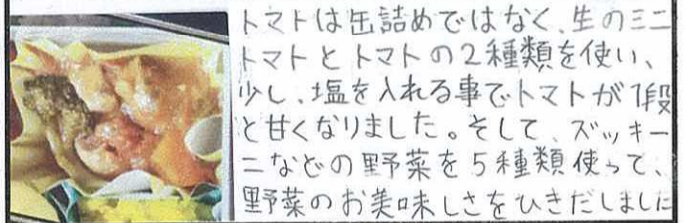 トマトは缶詰めではなく、生のミニ
トマトとトマトの2種類を使い、
少し、塩を入れる事でトマトが1段
と甘くなりました。そして、ズッキー
ニなどの野菜を5種類使って、
野菜のお美味しさをひきだしました